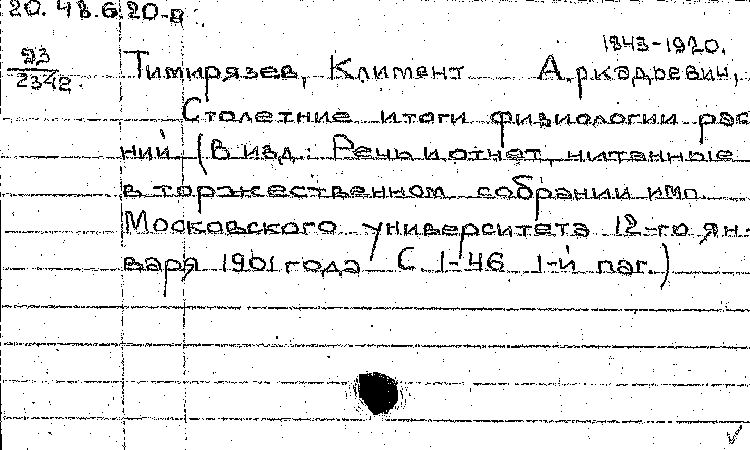 20. 48.6.20-в
1843-1920.
93
2342.
Тимирязев, Климент Аркадьевич,
Столетние итоги физиологии рас
ний (В изд.: Речь и отчет, читанные
в торжественном собрании имп.
Московского университета 12-го ян-
варя 1901 года С. 1-46 1-й паг.)